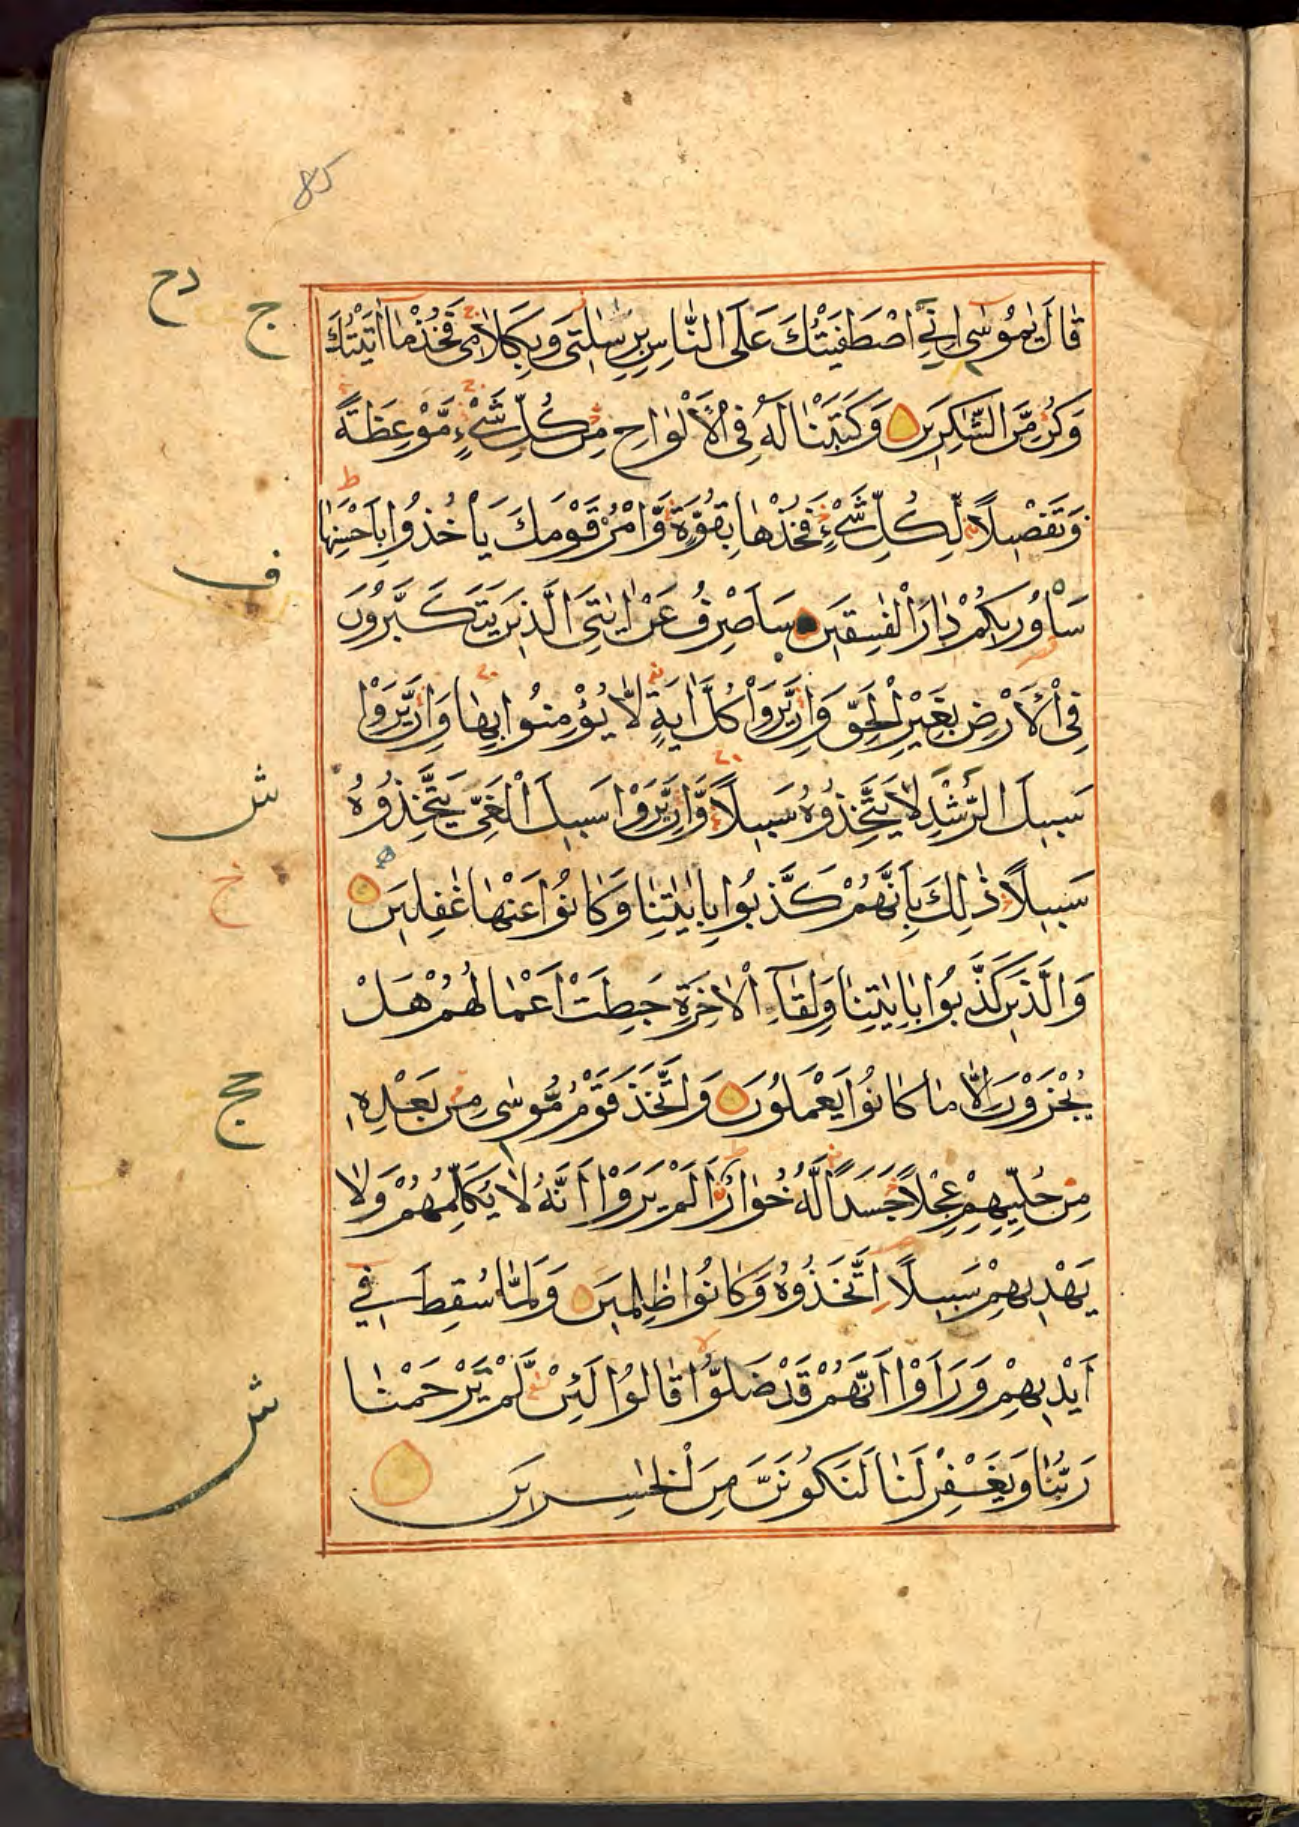 85
قَالَ يٰمُوْسٰى اِنِّي اصْطَفَيْتُكَ عَلَى النَّاسِ بِرِسٰلٰتِىْ وَبِكَلَامِىْ فَخُذْ مَا اٰتَيْتُكَ
وَكُنْ مِّنَ الشّٰكِرِيْنَ وَكَتَبْنَا لَهٗ فِى الْاَلْوَاحِ مِنْ كُلِّ شَىْءٍ مَّوْعِظَةً
وَتَفْصِيْلًا لِّكُلِّ شَىْءٍ فَخُذْهَا بِقُوَّةٍ وَّاْمُرْ قَوْمَكَ يَاْخُذُوْا بِاَحْسَنِهَا
سَاُورِيْكُمْ دَارَ الْفٰسِقِيْنَ سَاَصْرِفُ عَنْ اٰيٰتِىَ الَّذِيْنَ يَتَكَبَّرُوْنَ
فِى الْاَرْضِ بِغَيْرِ الْحَقِّ وَاِنْ يَّرَوْا كُلَّ اٰيَةٍ لَّا يُؤْمِنُوْا بِهَا وَاِنْ يَّرَوْا
سَبِيْلَ الرُّشْدِ لَا يَتَّخِذُوْهُ سَبِيْلًا وَّاِنْ يَّرَوْا سَبِيْلَ الْغَىِّ يَتَّخِذُوْهُ
سَبِيْلًا ذٰلِكَ بِاَنَّهُمْ كَذَّبُوْا بِاٰيٰتِنَا وَكَانُوْا عَنْهَا غٰفِلِيْنَ
وَالَّذِيْنَ كَذَّبُوْا بِاٰيٰتِنَا وَلِقَآءِ الْاٰخِرَةِ حَبِطَتْ اَعْمَالُهُمْ هَلْ
يُجْزَوْنَ اِلَّا مَا كَانُوْا يَعْمَلُوْنَ وَاتَّخَذَ قَوْمُ مُوْسٰى مِنْ بَعْدِهٖ
مِنْ حُلِيِّهِمْ عِجْلًا جَسَدًا لَّهٗ خُوَارٌ اَلَمْ يَرَوْا اَنَّهٗ لَا يُكَلِّمُهُمْ وَلَا
يَهْدِيْهِمْ سَبِيْلًا اِتَّخَذُوْهُ وَكَانُوْا ظٰلِمِيْنَ وَلَمَّا سُقِطَ فِىْ
اَيْدِيْهِمْ وَرَاَوْا اَنَّهُمْ قَدْ ضَلُّوْا قَالُوْا لَئِنْ لَّمْ يَرْحَمْنَا
رَبُّنَا وَيَغْفِرْ لَنَا لَنَكُوْنَنَّ مِنَ الْخٰسِرِيْنَ